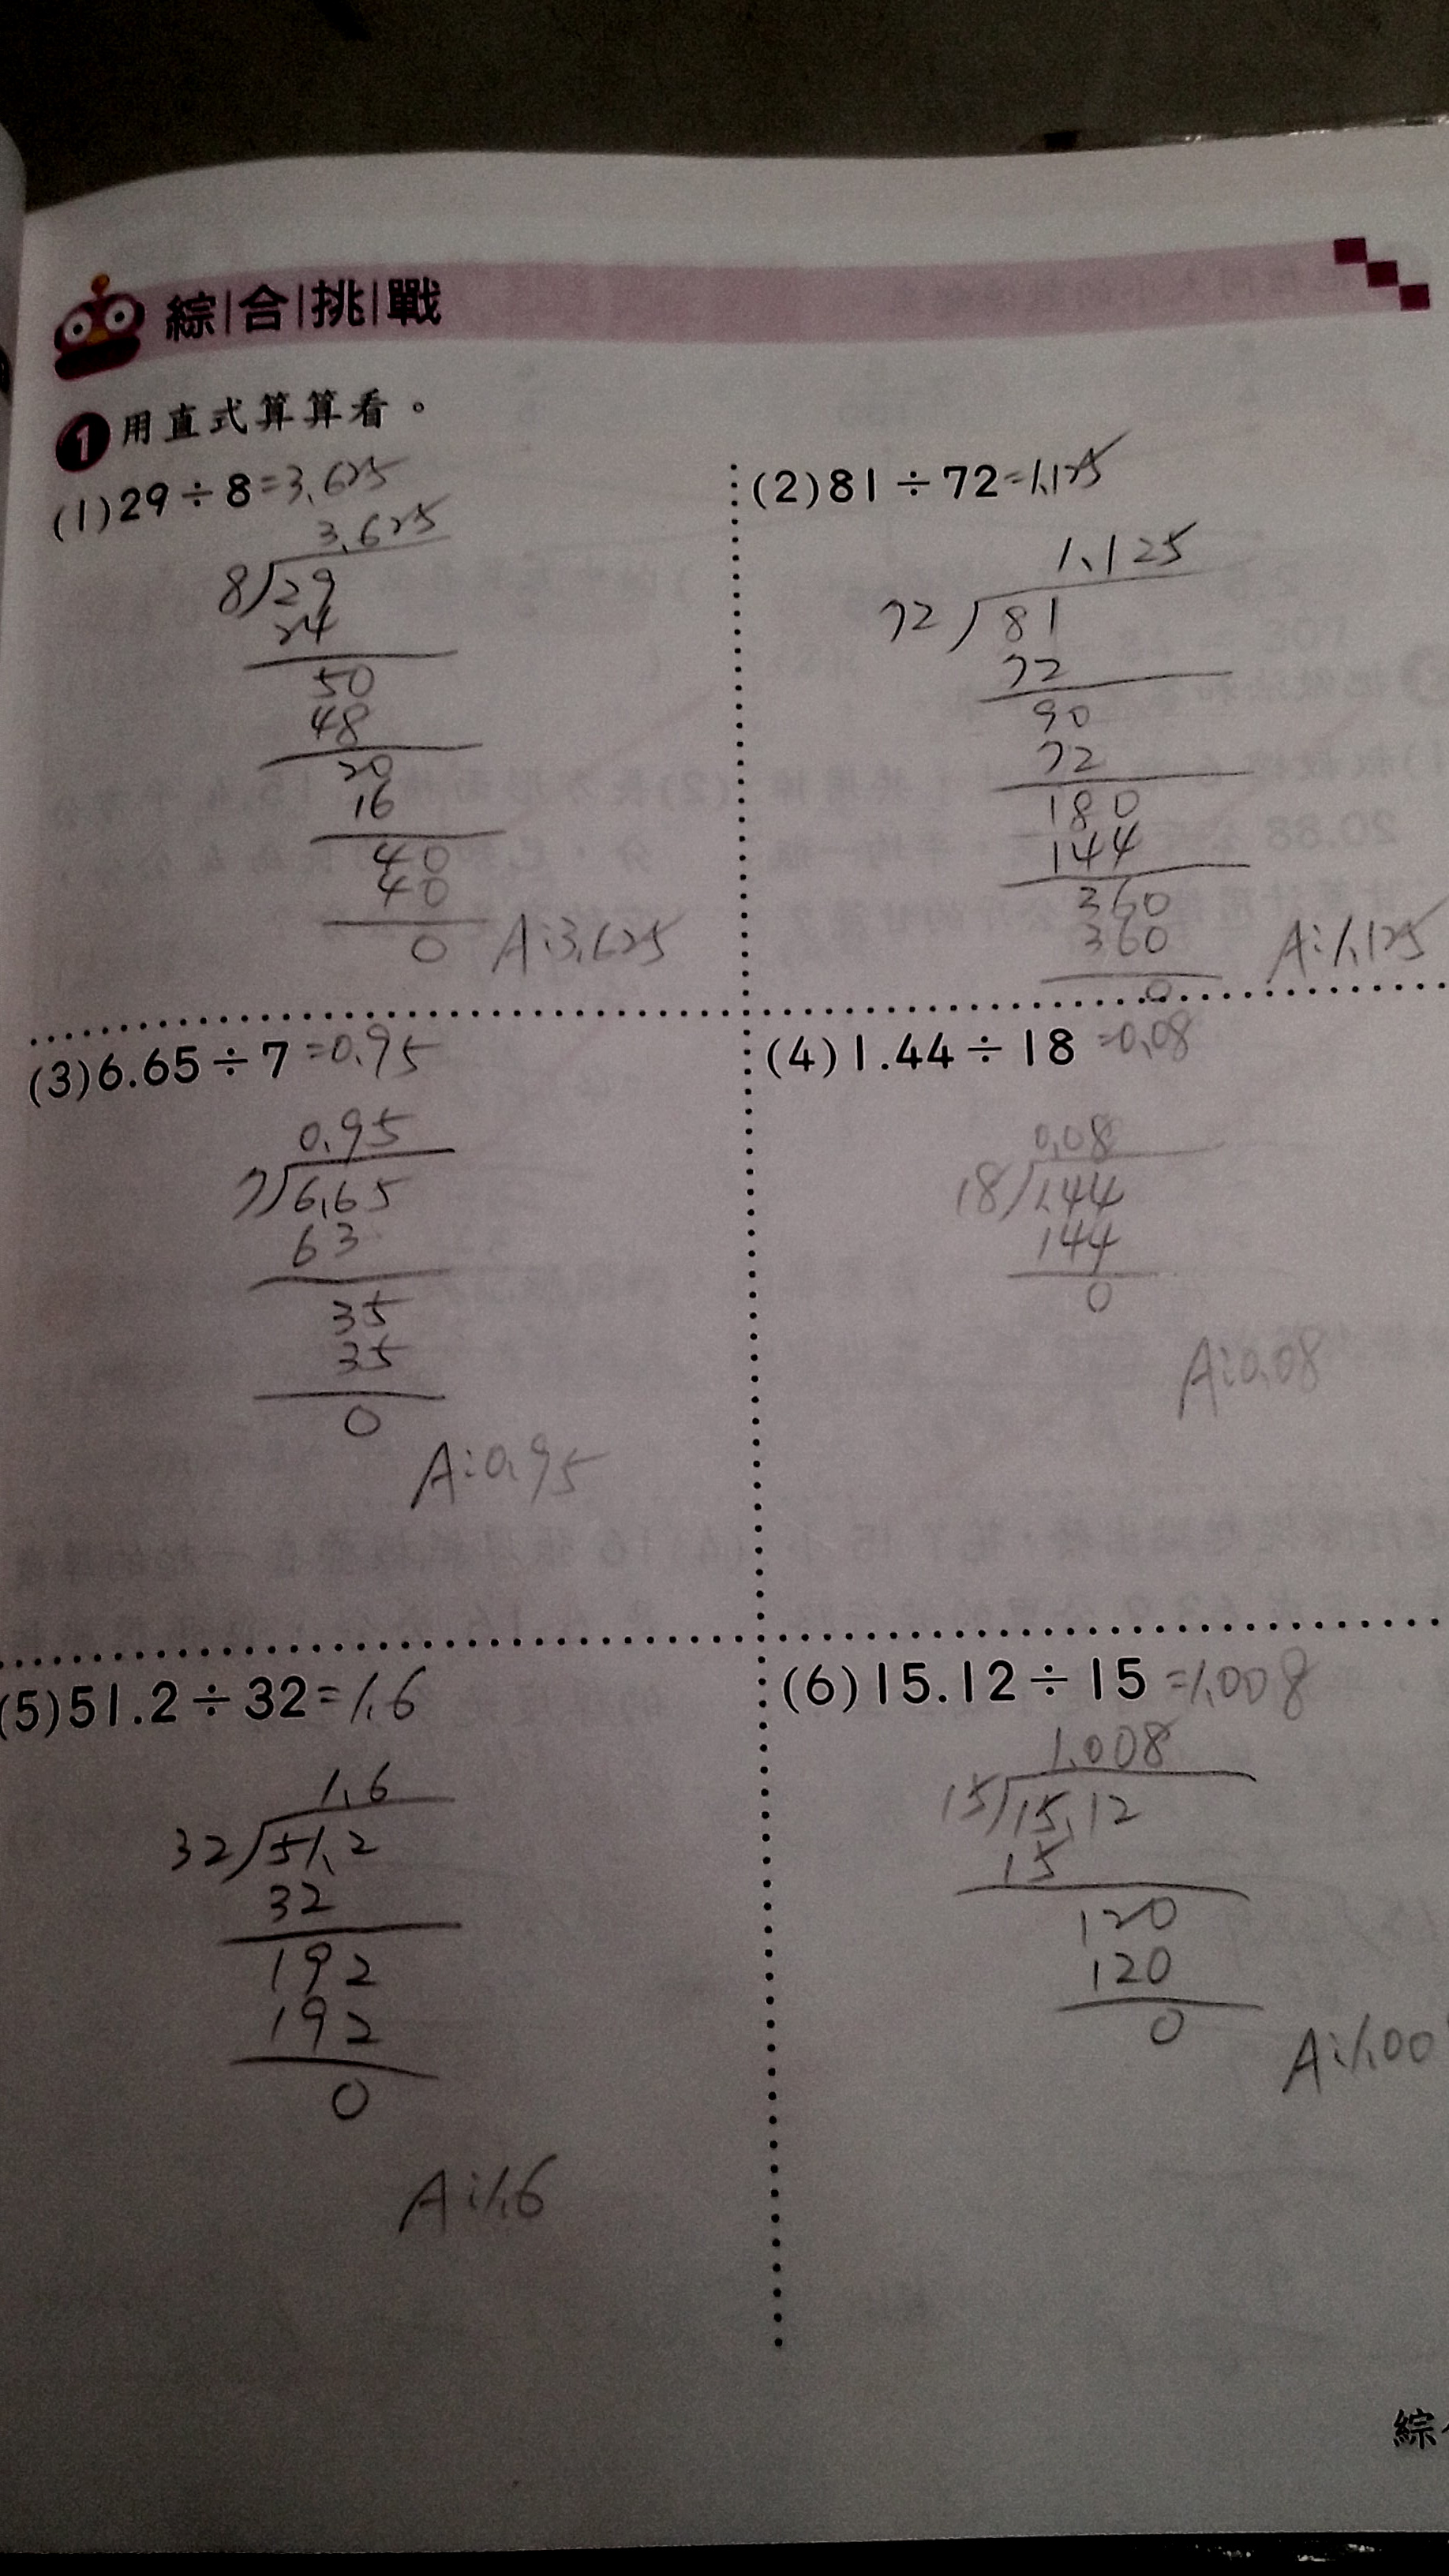 綜合挑戰
1用直式算算看。
(1)29÷8=3.625
3.625
8 29
24
50
48
20
16
40
40
0
A:3.625
(2)81÷72=1.125
1.125
72 81
72
90
72
180
144
360
360
0
A:1.125
(3)6.65÷7=0.95
0.95
7 6.65
63
35
35
0
A:0.95
(4)1.44÷18=0.08
0.08
18 1.44
144
0
A:0.08
(5)51.2÷32=1.6
1.6
32 51.2
32
192
192
0
A:1.6
(6)15.12÷15=1.008
1.008
15 15.12
15
120
120
0
A:1.00
綜